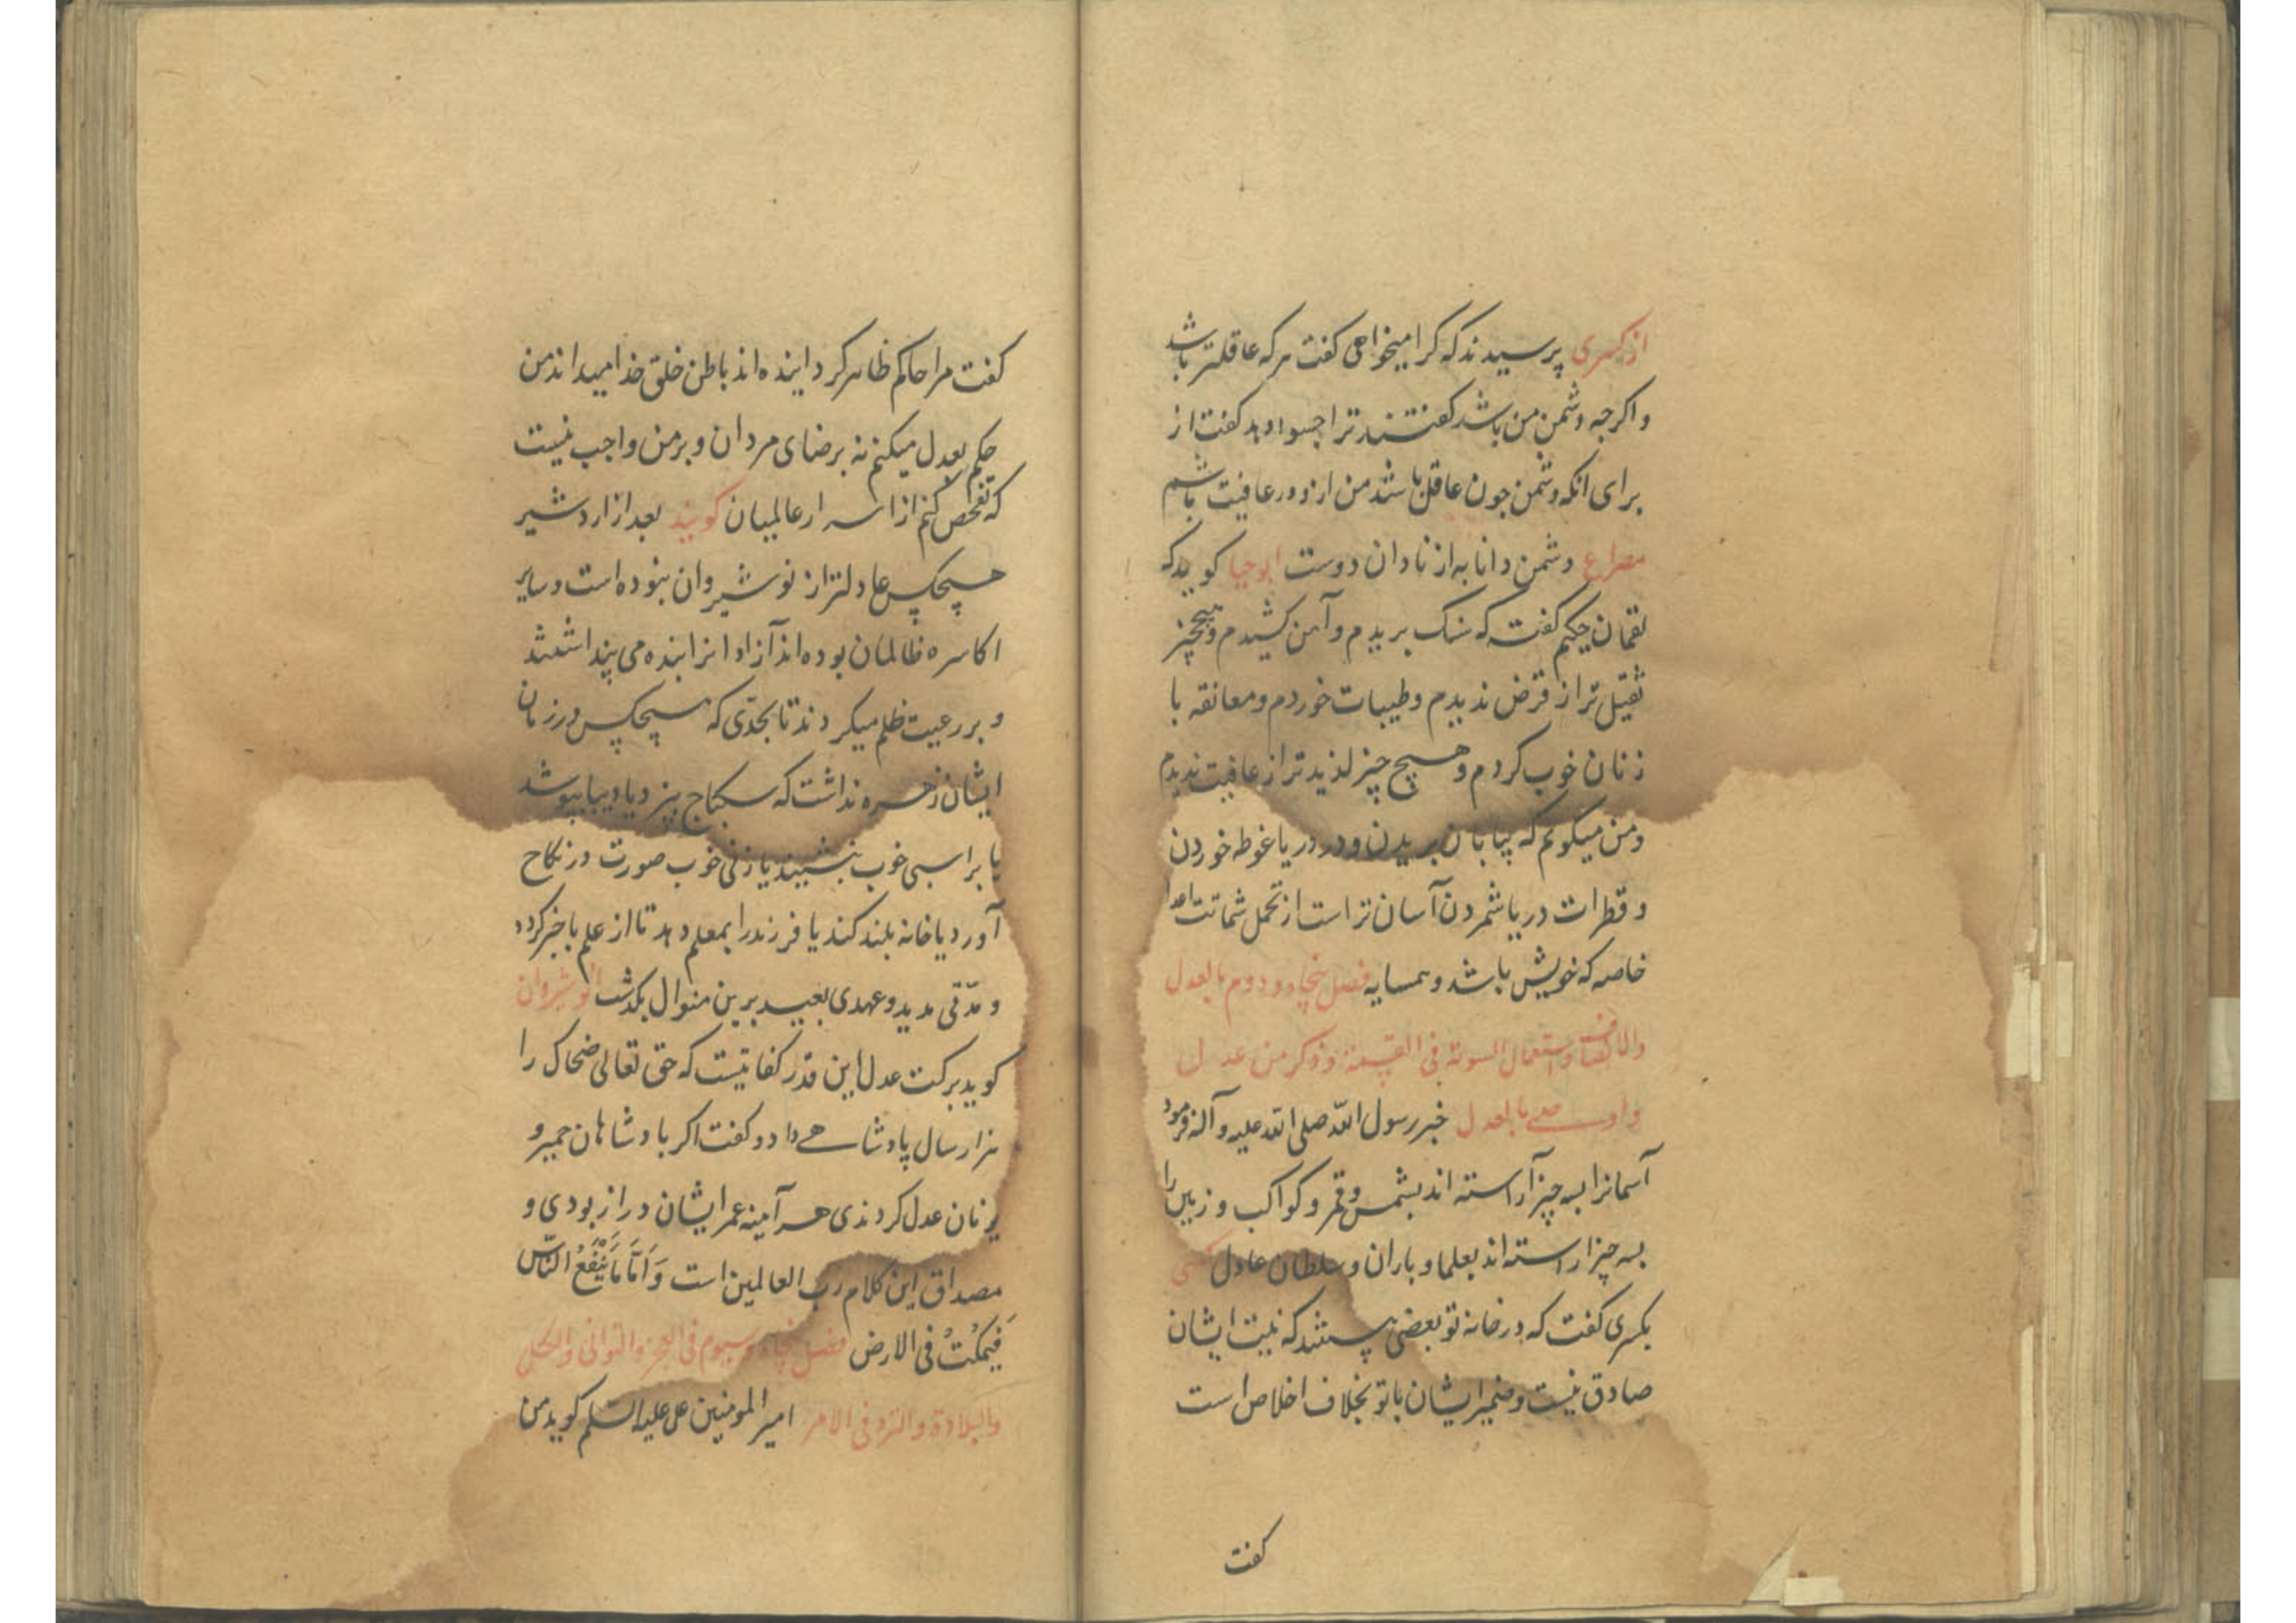 از کسری پرسیدند که کرا میخواهی کفت هر که عاقلتر باشد
و اکرچه دشمن من باشد کفتند ترا چسود دهد کفت از
برای انکه دشمن چون عاقل باشد من ازو در عافیت باشم
مصراع دشمن دانا به از نادان دوست ابو حیا کوید که
لقمان حکیم کفت که سنک بریدم و آهن کشیدم و هیچ چیز
ثقیل تر از قرض ندیدم و طیبات خوردم و معانقه با
زنان خوب کردم و هیچ چیز لذیدتر از عافیت ندیدم
و من میکویم که بیابان بریدن و در دریا غوطه خوردن
و قطرات دریا شمردن آسان تر است از تحمل شماتت اعدا
خاصه که خویش باشد و همسایه فصل پنجاه و دوم بالعدل
والانصاف و استعمال السویة فی القسمة و ذکر من عدل
و اوصی بالعدل خبر رسول الله صلی الله علیه و آله فرمود
آسمانرا بسه چیز آراسته اند بشمس و قمر و کواکب و زمین را
بسه چیز اراسته اند بعلما و باران و سلطان عادل کسی
بکسری کفت که در خانه تو بعضی هستند که نیت ایشان
صادق نیست و ضمیر ایشان با تو بخلاف اخلاص است
کفت
کفت مرا حاکم ظاهر کردانیده اند باطن خلق خدا میداند من
حکم بعدل میکنم نه برضای مردان و بر من واجب نیست
که تفحص کنم از اسرار عالمیان کویند بعد از اردشیر
هیچکس عادلتر از نوشیروان نبوده است و سایر
اکاسره ظالمان بوده اند آزادانرا بنده می پنداشتند
و بر رعیت ظلم میکردند تا بحدّی که هیچکس در زمان
ایشان زهره نداشت که سکباج پزد یا دیبا پوشد
یا بر اسبی خوب نشیند یا زنی خوب صورت در نکاح
آورد یا خانه بلند کند یا فرزند را بمعلم دهد تا از علم با خبر کردد
و مدّتی مدید و عهدی بعید برین منوال بکذشت انوشیروان
کوید برکت عدل این قدر کفایتست که حق تعالی ضحاک را
هزار سال پادشاهی داد و کفت اکر پادشاهان حمیر و
یونان عدل کردندی هر آینه عمر ایشان دراز بودی و
مصداق این کلام رب العالمین است وَاَمَّا مَا یَنْفَعُ النَّاسَ
فَیَمْکُثُ فی الارض فصل پنجاه و سیوم فی العجز و التوانی و الکسل
والبلادة و التردد فی الامر امیر المومنین علی علیه السلم کوید من